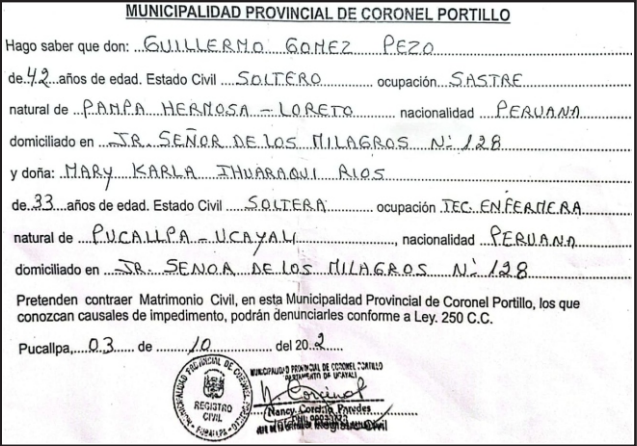 MUNICIPALIDAD PROVINCIAL DE CORONEL PORTILLO
Hago saber que don: GUILLERMO GOMEZ PEZO
de 42 años de edad. Estado Civil SOLTERO ocupación SASTRE
natural de PAMPA HERMOSA - LORETO nacionalidad PERUANA
domiciliado en JR. SEÑOR DE LOS MILAGROS Nº 128
y doña: MARY KARLA IHUARAQUI RIOS
de 33 años de edad. Estado Civil SOLTERA ocupación TEC. ENFERMERA
natural de PUCALLPA - UCAYALI, nacionalidad PERUANA
domiciliado en JR. SENOR DE LOS MILAGROS Nº 128
Pretenden contraer Matrimonio Civil, en esta Municipalidad Provincial de Coronel Portillo, los que
conozcan causales de impedimento, podrán denunciarles conforme a Ley. 250 C.C.
Pucallpa, 03 de 10 del 20 2
MUNICIPALIDAD PROVINCIAL DE CORONEL PORTILLO
DEPARTAMENTO DE UCAYALI
REGISTRO
CIVIL
PUCALLPA
Nancy Paredes